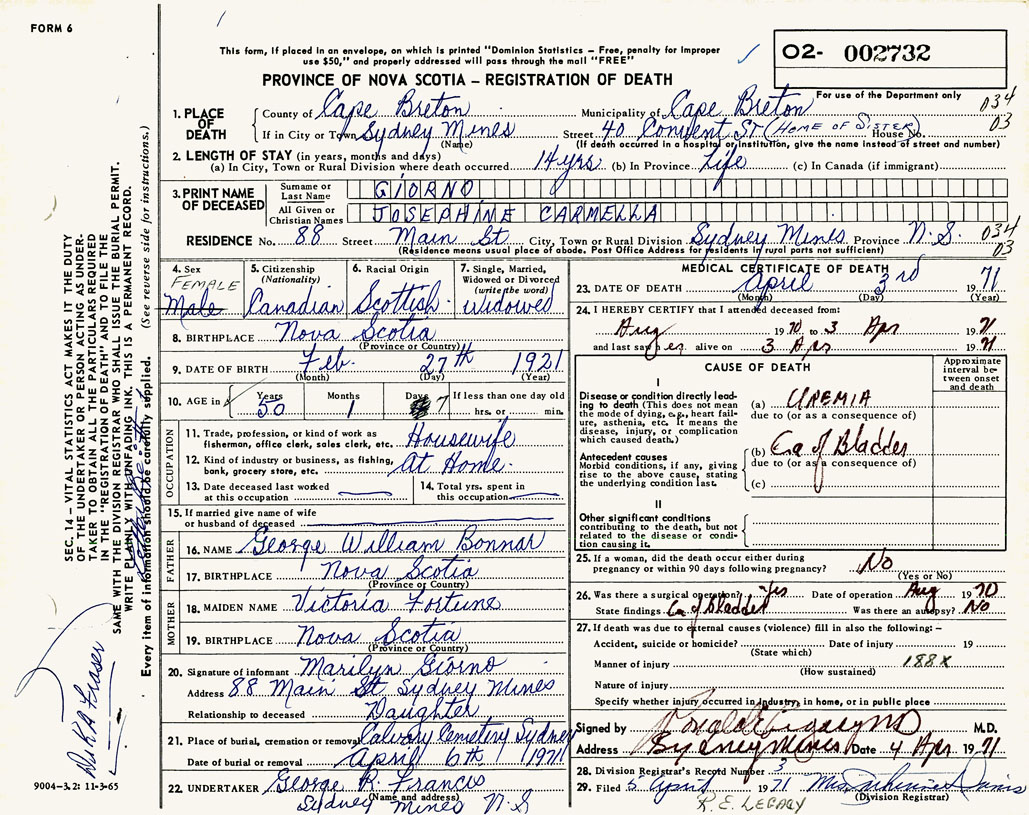 FORM 6
This form, if placed in an envelope, on which is printed "Dominion Statistics – Free, penalty for improper
use $50," and properly addressed will pass through the mail "FREE"
O2- 002732
PROVINCE OF NOVA SCOTIA – REGISTRATION OF DEATH
For use of the Department only
034
03
1. PLACE OF DEATH
County of Cape Breton Municipality of Cape Breton
If in City or Town Sydney Mines Street 40 Convent ST (HOME OF SISTER) House No.
(Name) (If death occurred in a hospital or institution, give the name instead of street and number)
2. LENGTH OF STAY (in years, months and days)
(a) In City, Town or Rural Division where death occurred 14 yrs (b) In Province Life (c) In Canada (if immigrant)
3. PRINT NAME OF DECEASED
Surname or Last Name GIORNO
All Given or Christian Names JOSEPHINE CARMELLA
RESIDENCE No. 88 Street Main St City, Town or Rural Division Sydney Mines Province N.S. 034
(Residence means usual place of abode. Post Office Address for residents in rural parts not sufficient) 03
4. Sex FEMALE Male
5. Citizenship (Nationality) Canadian
6. Racial Origin Scottish
7. Single, Married, Widowed or Divorced (write the word) Widowed
8. BIRTHPLACE Nova Scotia
(Province or Country)
9. DATE OF BIRTH Feb. 27th 1921
(Month) (Day) (Year)
10. AGE in Years 50 Months 1 Days 7 If less than one day old hrs. or min.
OCCUPATION
11. Trade, profession, or kind of work as fishermen, office clerk, sales clerk, etc. Housewife
12. Kind of industry or business, as fishing, bank, grocery store, etc. At Home.
13. Date deceased last worked at this occupation
14. Total yrs. spent in this occupation
15. If married give name of wife or husband of deceased
FATHER
16. NAME George William Bonnar
17. BIRTHPLACE Nova Scotia
(Province or Country)
MOTHER
18. MAIDEN NAME Victoria Fortune
19. BIRTHPLACE Nova Scotia
(Province or Country)
20. Signature of informant Marilyn Giorno
Address 88 Main St Sydney Mines
Relationship to deceased Daughter
21. Place of burial, cremation or removal Calvary Cemetery Sydney
Date of burial or removal April 6th 1971
22. UNDERTAKER George R. Francis
(Name and address)
Sydney Mines N.S
MEDICAL CERTIFICATE OF DEATH
23. DATE OF DEATH April 3rd 1971
(Month) (Day) (Year)
24. I HEREBY CERTIFY that I attended deceased from:
Aug 1970 to 3 Apr 1971
and last saw her alive on 3 Apr 1971
CAUSE OF DEATH
Approximate interval between onset and death
I
Disease or condition directly leading to death (This does not mean the mode of dying, e.g., heart failure, asthenia, etc. It means the disease, injury, or complication which caused death.)
(a) UREMIA
due to (or as a consequence of)
Antecedent causes
Morbid conditions, if any, giving rise to the above cause, stating the underlying condition last.
(b) Ca of Bladder
due to (or as a consequence of)
(c)
II
Other significant conditions
contributing to the death, but not related to the disease or condition causing it.
25. If a woman, did the death occur either during pregnancy or within 90 days following pregnancy? No
(Yes or No)
26. Was there a surgical operation? Yes Date of operation Aug 1970
State findings Ca of Bladder Was there an autopsy? No
27. If death was due to external causes (violence) fill in also the following: –
Accident, suicide or homicide? Date of injury 19
(State which)
Manner of injury 188X
(How sustained)
Nature of injury
Specify whether injury occurred in industry, in home, or in public place
Signed by M.D.
Address Sydney Mines Date 4 Apr 1971
28. Division Registrar's Record Number 3
29. Filed 5 April 1971 Mrs.
(Division Registrar)
R.E. LEGACY
SEC. 14 – VITAL STATISTICS ACT MAKES IT THE DUTY
OF THE UNDERTAKER OR PERSON ACTING AS UNDER-
TAKER TO OBTAIN ALL THE PARTICULARS REQUIRED
IN THE "REGISTRATION OF DEATH" AND TO FILE THE
SAME WITH THE DIVISION REGISTRAR WHO SHALL ISSUE THE BURIAL PERMIT.
WRITE PLAINLY WITH UNFADING INK. THIS IS A PERMANENT RECORD.
Every item of information should be carefully supplied. (See reverse side for instructions.)
Dr K A Fraser
9004–3.2: 11-3-65